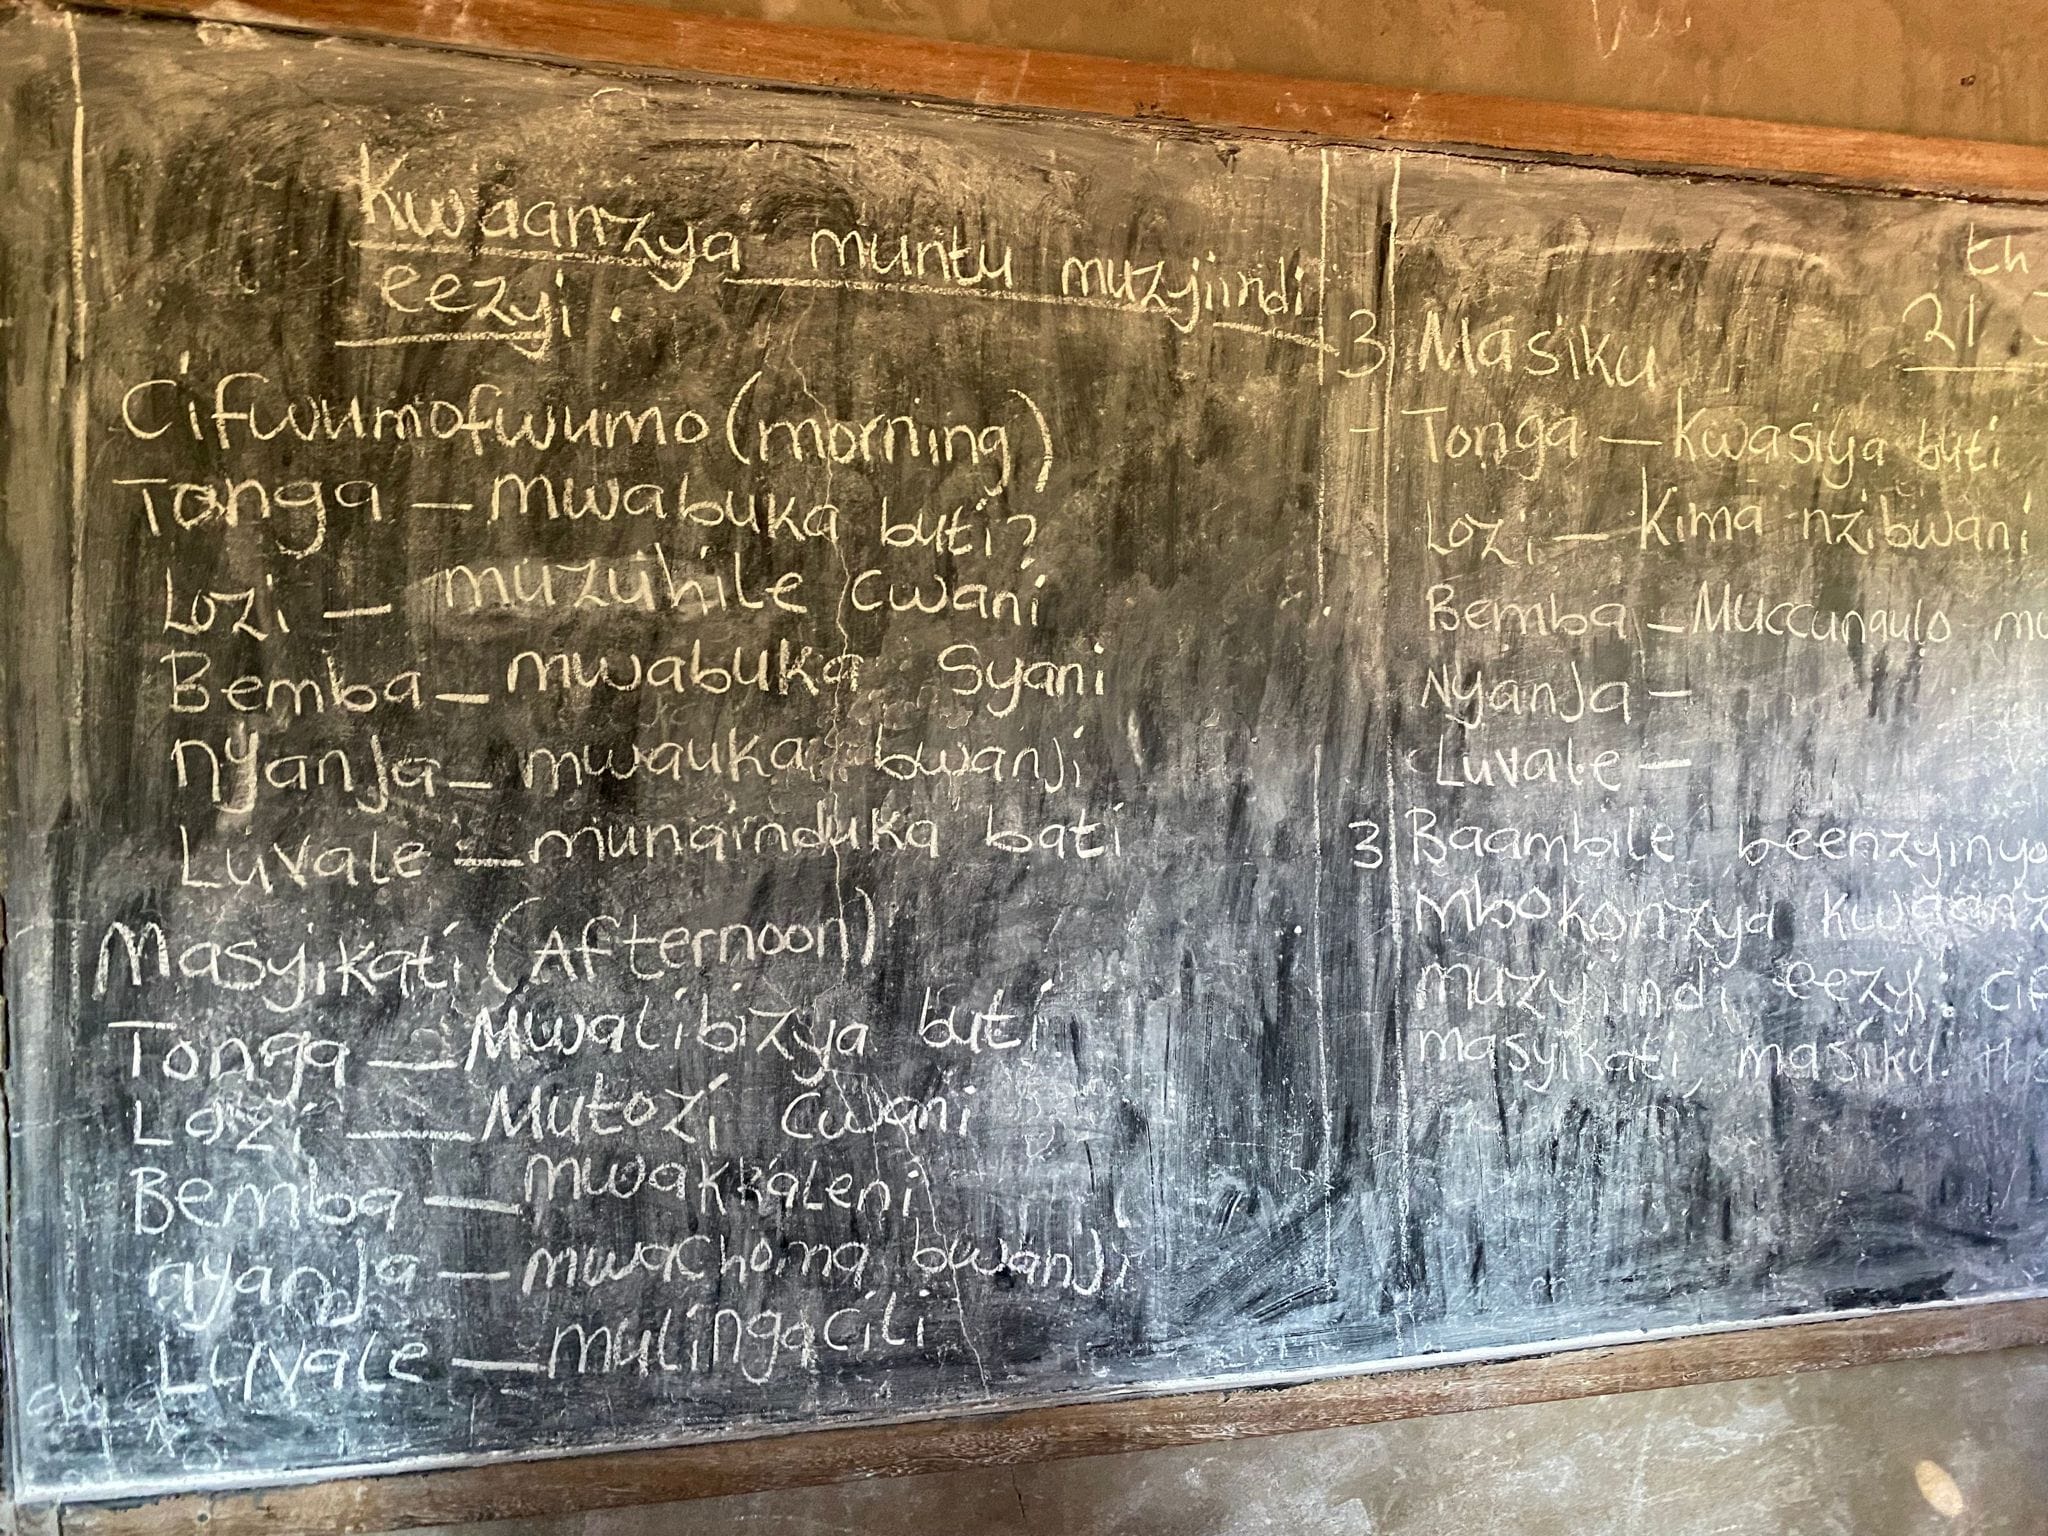 Kwaanzya muntu muzyiindi
eezyi.
Cifwumofwumo (morning)
Tonga — mwabuka buti?
Lozi — muzuhile cwani
Bemba — mwabuka Syani
nyanja — mwauka bwanji
Luvale — munginduka bati
Masyikati (Afternoon)
Tonga — Mwalibizya buti
Lozi — Mutozi cwani
Bemba — mwakkaleni
nyanja — mwachoma bwanji
Luvale — mulingacili
th
21
3 Masiku
Tonga — Kwasiya buti
Lozi — Kima nzibwani
Bemba — Muccungulo mu
Nyanja —
Luvale —
3 Baambile beenzyinyo
mbokonzya kwaanz
muzyiindi eezyi. cif
masyikati, masiku.